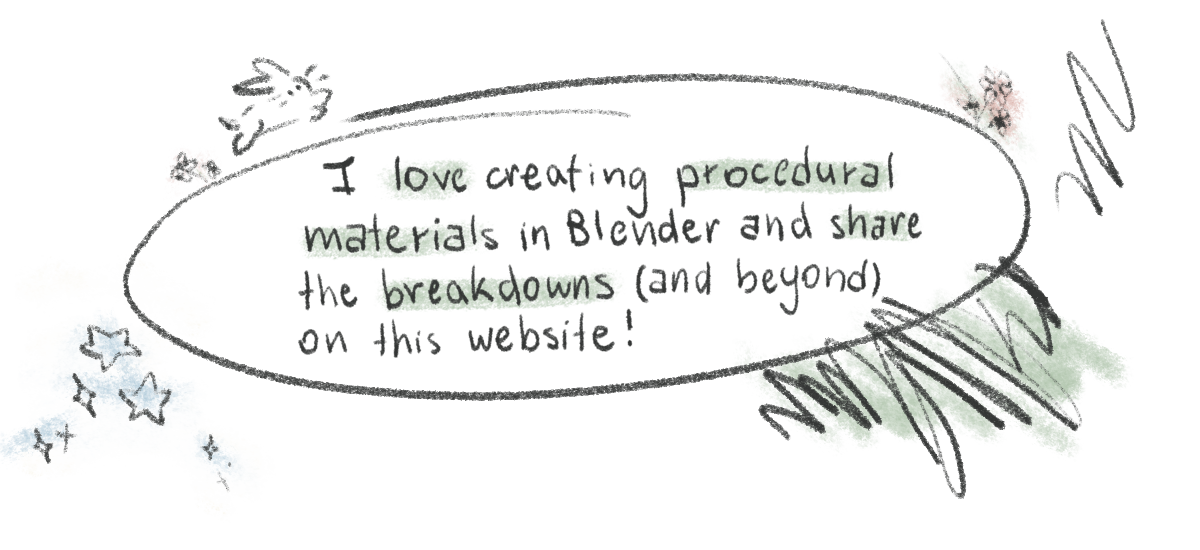 I love creating procedural
materials in Blender and share
the breakdowns (and beyond)
on this website!